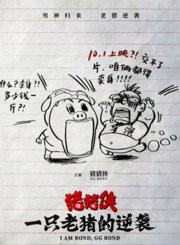 男神归来 老猪逆袭
10.1上映?!交不了
片,咱俩都得
卖身!!!
什么?卖身?!
多少钱一
斤?!
主演 猪猪侠
猪猪侠
一只老猪的逆袭
I AM BOND, GG BOND